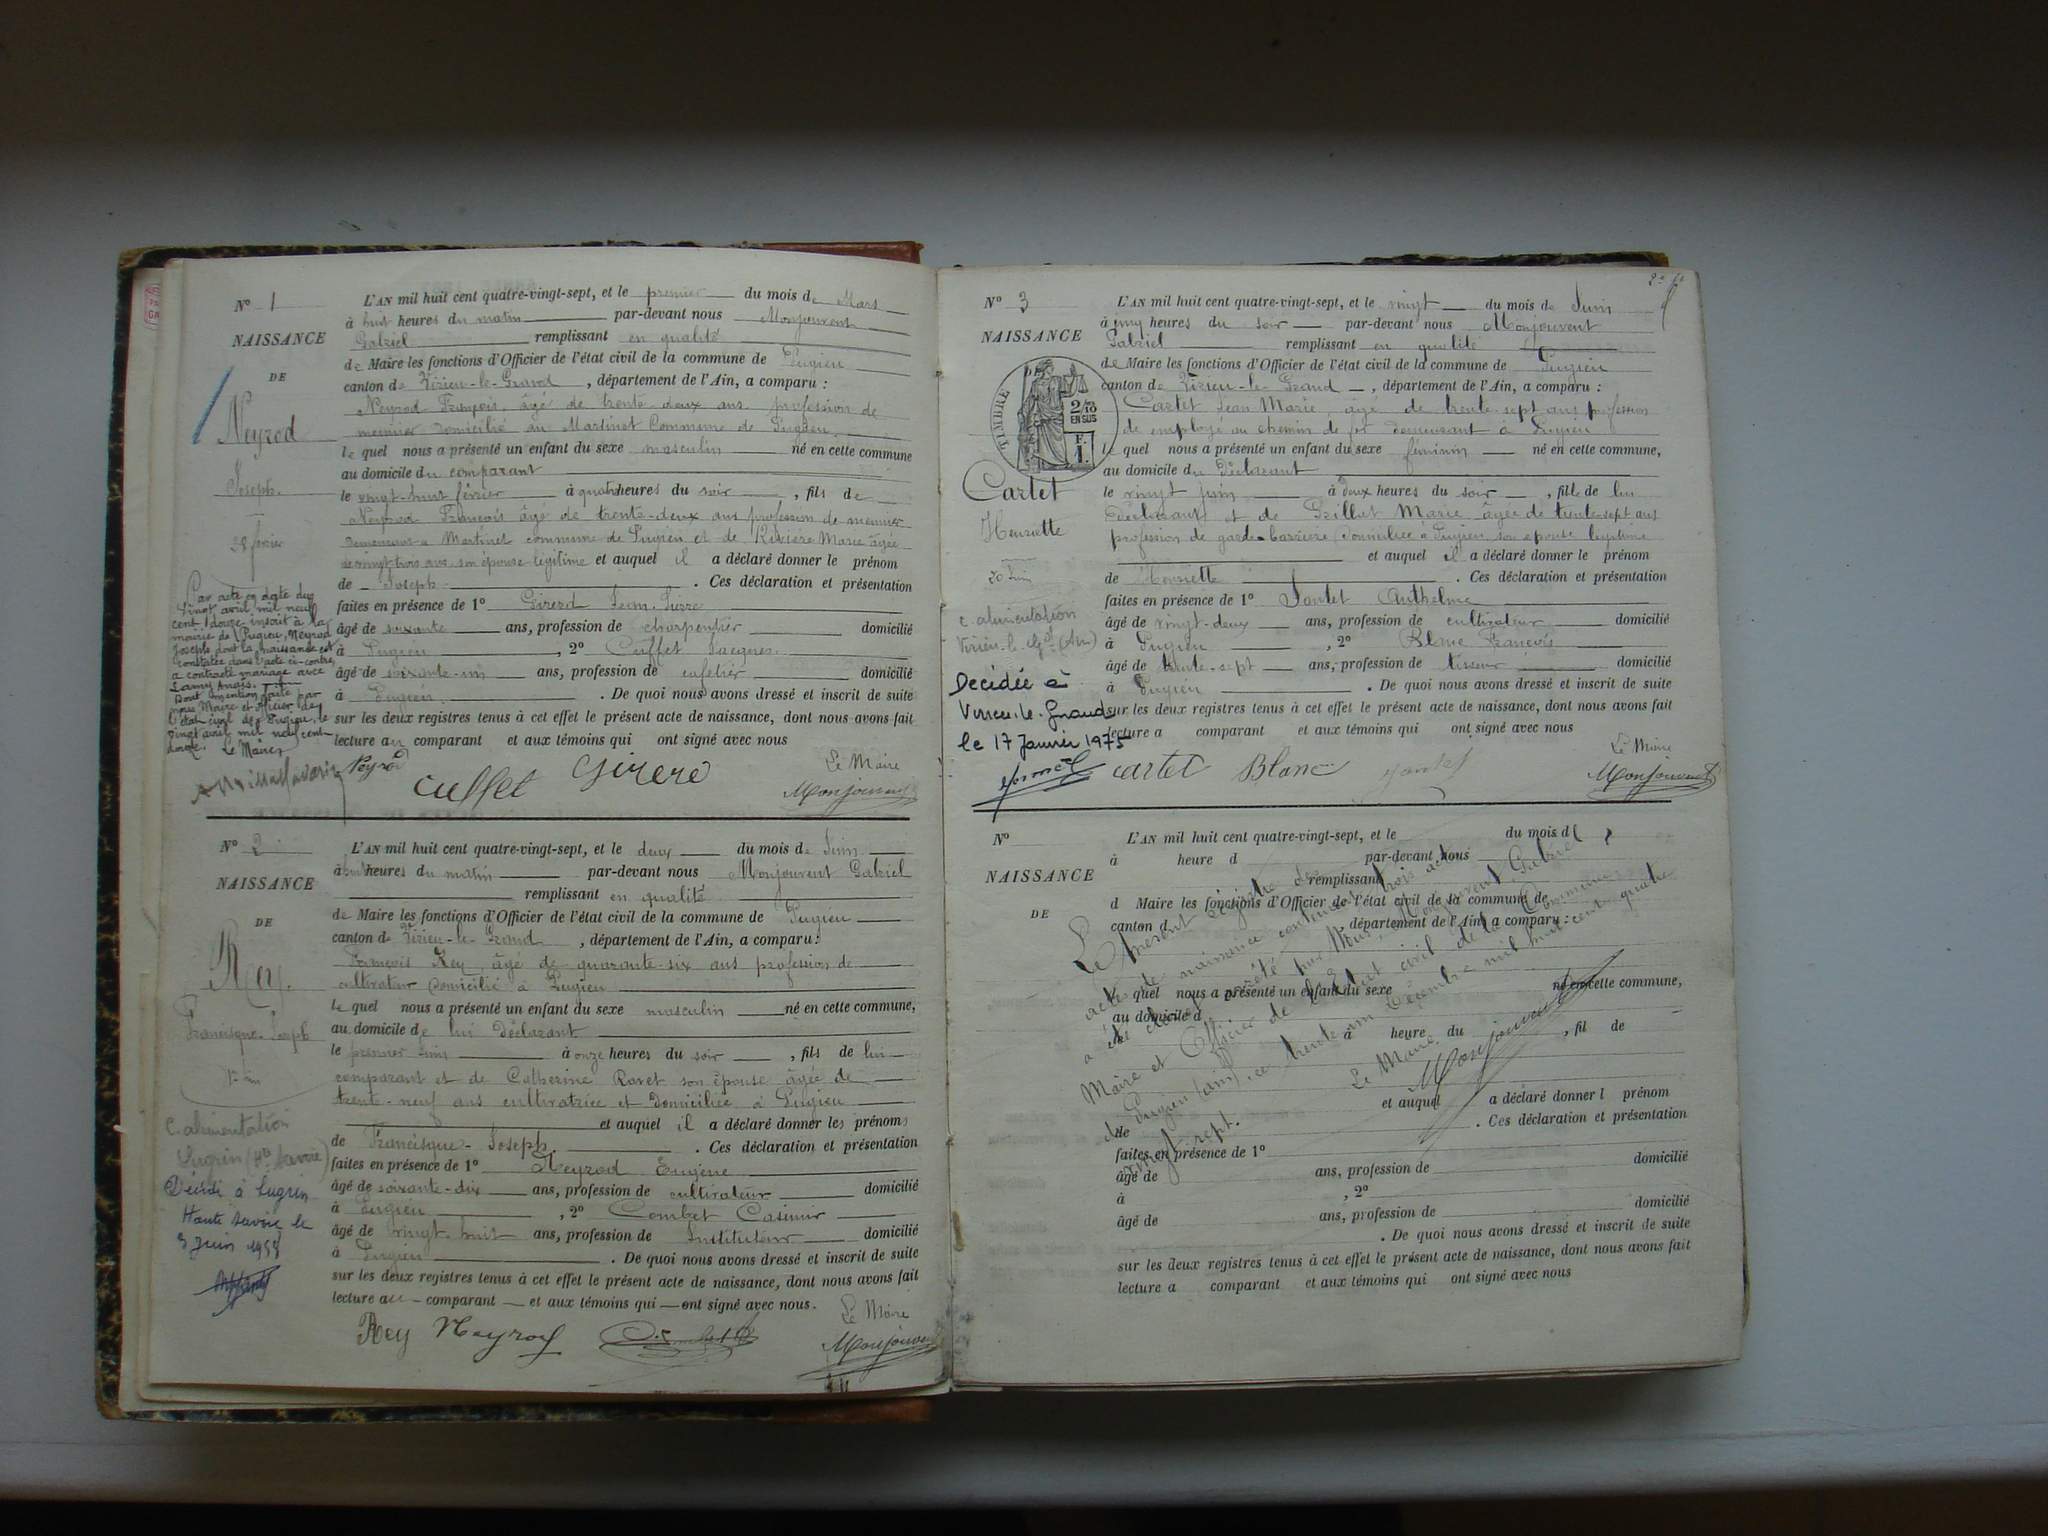 N° 1
NAISSANCE
DE
Neyrod
Joseph.
28 février
Par acte en date du
vingt avril mil neuf
cent douze inscrit à la
mairie de Pugieu, Neyrod
Joseph dont la naissance est
constatée dans l'acte ci-contre,
a contracté mariage avec
Lamy Anaïs.
Dont mention faite par
nous Maire et officier de
l'état civil de Pugieu, le
vingt avril mil neuf cent
douze. Le Maire
L'AN mil huit cent quatre-vingt-sept, et le premier du mois de Mars
à huit heures du matin par-devant nous Monjouvent
Gabriel remplissant en qualité
de Maire les fonctions d'Officier de l'état civil de la commune de Pugieu
canton de Virieu-le-Grand, département de l'Ain, a comparu :
Neyrod François, âgé de trente-deux ans profession de
meunier domicilié au Martinet Commune de Pugieu.
le quel nous a présenté un enfant du sexe masculin né en cette commune
au domicile du comparant
le vingt-huit février à quatre heures du soir, fils de
Neyrod François âgé de trente-deux ans profession de meunier
demeurant à Martinet commune de Pugieu et de Rivière Marie âgée
de vingt trois ans son épouse légitime et auquel il a déclaré donner le prénom
de Joseph. Ces déclaration et présentation
faites en présence de 1° Girerd Jean-Pierre
âgé de soixante ans, profession de charpentier domicilié
à Pugieu, 2° Cuffet Jacques.
âgé de soixante-un ans, profession de cafetier domicilié
à Pugieu. De quoi nous avons dressé et inscrit de suite
sur les deux registres tenus à cet effet le présent acte de naissance, dont nous avons fait
lecture au comparant et aux témoins qui ont signé avec nous
Le Maire
Neyrod Cuffet Girerd Monjouvent
N° 2
NAISSANCE
DE
Rey.
Francisque-Joseph
1er Juin
C. alimentation
Lugrin (Hte Savoie)
Décédé à Lugrin
Haute Savoie le
L'AN mil huit cent quatre-vingt-sept, et le deux du mois de Juin
à huit heures du matin par-devant nous Monjouvent Gabriel
remplissant en qualité
de Maire les fonctions d'Officier de l'état civil de la commune de Pugieu
canton de Virieu-le-Grand, département de l'Ain, a comparu :
François Rey, âgé de quarante-six ans profession de
cultivateur domicilié à Pugieu
le quel nous a présenté un enfant du sexe masculin né en cette commune,
au domicile de lui Déclarant
le premier Juin à onze heures du soir, fils de lui
comparant et de Catherine Ravet son épouse âgée de
trente-neuf ans cultivatrice et domiciliée à Pugieu
et auquel il a déclaré donner les prénoms
de Francisque-Joseph. Ces déclaration et présentation
faites en présence de 1° Neyrod Eugène
âgé de soixante-dix ans, profession de cultivateur domicilié
à Pugieu, 2° Combet Casimir
âgé de vingt huit ans, profession de Instituteur domicilié
à Pugieu. De quoi nous avons dressé et inscrit de suite
sur les deux registres tenus à cet effet le présent acte de naissance, dont nous avons fait
lecture au comparant et aux témoins qui ont signé avec nous.
Le Maire
Rey Neyrod Monjouvent
N° 3
NAISSANCE
TIMBRE
2/10
EN SUS
F.
1.
Cartet
Henriette
20 Juin
C. alimentation
Virieu-le-Gd (Ain)
Décédée à
Virieu-le-Grand
le 17 Janvier 1975
L'AN mil huit cent quatre-vingt-sept, et le vingt du mois de Juin
à cinq heures du soir par-devant nous Monjouvent
Gabriel remplissant en qualité
de Maire les fonctions d'Officier de l'état civil de la commune de Pugieu
canton de Virieu-le-Grand, département de l'Ain, a comparu :
Cartet Jean Marie, âgé de trente sept ans profession
de employé au chemin de fer demeurant à Pugieu
le quel nous a présenté un enfant du sexe féminin né en cette commune,
au domicile du Déclarant
le vingt juin à deux heures du soir, fille de lui
Déclarant et de Grillet Marie âgée de trente-sept ans
profession de garde-barrière domiciliée à Pugieu son épouse légitime
et auquel il a déclaré donner le prénom
de Henriette. Ces déclaration et présentation
faites en présence de 1° Anthelme
âgé de vingt-deux ans, profession de cultivateur domicilié
à Pugieu, 2° Blanc François
âgé de trente-sept ans, profession de tisseur domicilié
à Pugieu. De quoi nous avons dressé et inscrit de suite
sur les deux registres tenus à cet effet le présent acte de naissance, dont nous avons fait
lecture a comparant et aux témoins qui ont signé avec nous
Le Maire
Cartet Blanc Monjouvent
N°
NAISSANCE
DE
L'AN mil huit cent quatre-vingt-sept, et le du mois d
à heure d par-devant nous
remplissant
d Maire les fonctions d'Officier de l'état civil de la commune de
canton d département de l'Ain, a comparu :
l quel nous a présenté un enfant du sexe né en cette commune,
au domicile d
le à heure du , fil de
et auquel a déclaré donner l prénom
de . Ces déclaration et présentation
faites en présence de 1°
âgé de ans, profession de domicilié
à , 2°
âgé de ans, profession de domicilié
. De quoi nous avons dressé et inscrit de suite
sur les deux registres tenus à cet effet le présent acte de naissance, dont nous avons fait
lecture a comparant et aux témoins qui ont signé avec nous
Le présent registre des
actes de naissance contenant trois actes
a été clos et arrêté par Nous, Monjouvent Gabriel
Maire et Officier de l'Etat civil de la Commune
de Pugieu (Ain), ce trente un Décembre mil huit cent quatre
vingt sept.
Le Maire,
Monjouvent